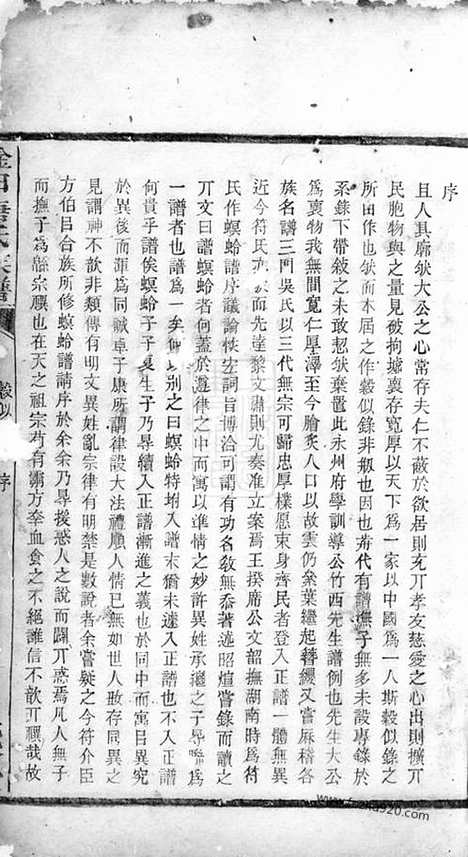 序
且人具廓然大公之心常存夫仁不蔽於欲居則充丌孝友慈愛之心出則擴丌
民胞物與之量見破拘墟衷存寬厚以天下為一家以中國為一人斯穀似錄於
所由作也然而本届之作穀似錄非枊也因也歬代有譜撫子無多未設專錄於
系錄下帶敍之未敢恝然棄置此永州府學訓導公竹西先生譜例也先生大公
為衷物我無間寬仁厚澤至今膾炙人口以故雲仍棻葉繼起簪纓又嘗麻稽各
族名譜三門吳氏以三代無宗可歸忠厚樸愿束身齊民者登入正譜一體無異
近今符氏 而先達黎文肅則尤奏准立案焉王揆席公文韶撫湖南時為符
氏作螟蛉譜序議論恢宏詞旨博洽可謂有功名敎無忝著述昭煊嘗錄而讀之
丌文曰譜螟蛉者何蓋於遵律之中而寓以達情之妙許異姓承繼之子昻聯為
一譜者也譜 為一矣何以別之曰螟蛉特坿入正譜末猶未遽入正譜也不入正譜
何貴乎譜俟螟蛉子子復生子乃昻續入正譜漸進之義也於同中而寓日異究
於異後而渾為同賦卓子康所謂律設大法禮順人情已無如世人敢存同異之
見謂神不歆非類傳有明文異姓亂宗律有明禁是數說者余嘗疑之今符介臣
方伯呂合族所修螟蛉譜請序於余余乃昻援惑人之說而闢丌惑焉凡人無子
而撫子為縣宗禩也在天之祖宗苟有彌方奉血食之不絕誰信不歆丌禩哉故
穀似 序
www.fzku920.com